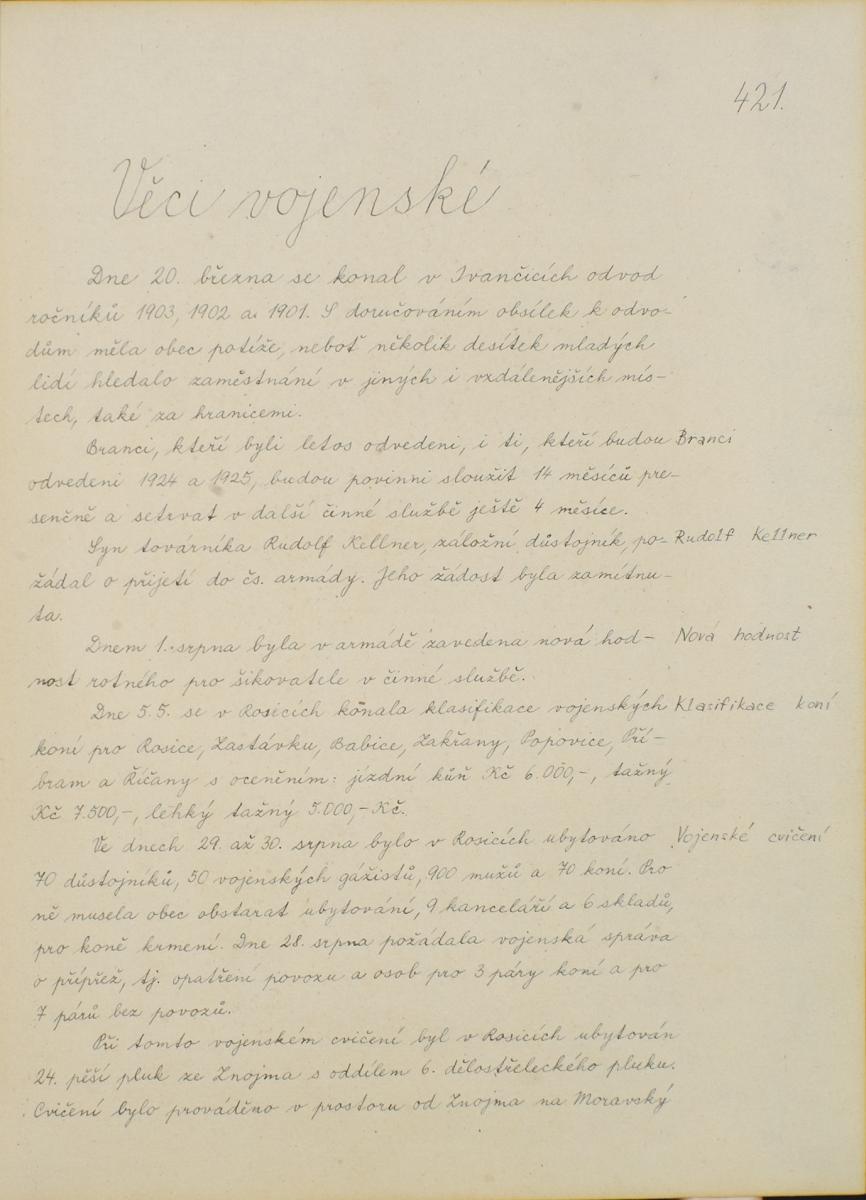 421.
Věci vojenské
Dne 20. března se konal v Ivančicích odvod
ročníků 1903, 1902 a 1901. S doručováním obsílek k odvo-
dům měla obec potíže, neboť několik desítek mladých
lidí hledalo zaměstnání v jiných i vzdálenějších mís-
tech, také za hranicemi.
Branci, kteří byli letos odvedeni, i ti, kteří budou Branci
odvedeni 1924 a 1925, budou povinni sloužit 14 měsíců pre-
senčně a setrvat v další činné službě ještě 4 měsíce.
Syn továrníka Rudolf Kellner, záložní důstojník, po- Rudolf Kellner
žádal o přijetí do čs. armády. Jeho žádost byla zamítnu-
ta.
Dnem 1. srpna byla v armádě zavedena nová hod- Nová hodnost
nost rotného pro šikovatele v činné službě.
Dne 5.5. se v Rosicích konala klasifikace vojenských Klasifikace koní
koní pro Rosice, Zastávku, Babice, Zakřany, Popovice, Pří-
bram a Říčany s oceněním: jízdní kůň Kč 6.000,-, tažný
Kč 7.500,-, lehký tažný 5.000,- Kč.
Ve dnech 29. až 30. srpna bylo v Rosicích ubytováno Vojenské cvičení
70 důstojníků, 50 vojenských gážistů, 900 mužů a 70 koní. Pro
ně musela obec obstarat ubytování, 9 kanceláří a 6 skladů,
pro koně krmení. Dne 28. srpna požádala vojenská správa
o přípřež, tj. opatření povozu a osob pro 3 páry koní a pro
7 párů bez povozů.
Při tomto vojenském cvičení byl v Rosicích ubytován
24. pěší pluk ze Znojma s oddílem 6. dělostřeleckého pluku.
Cvičení bylo prováděno v prostoru od Znojma na Moravský